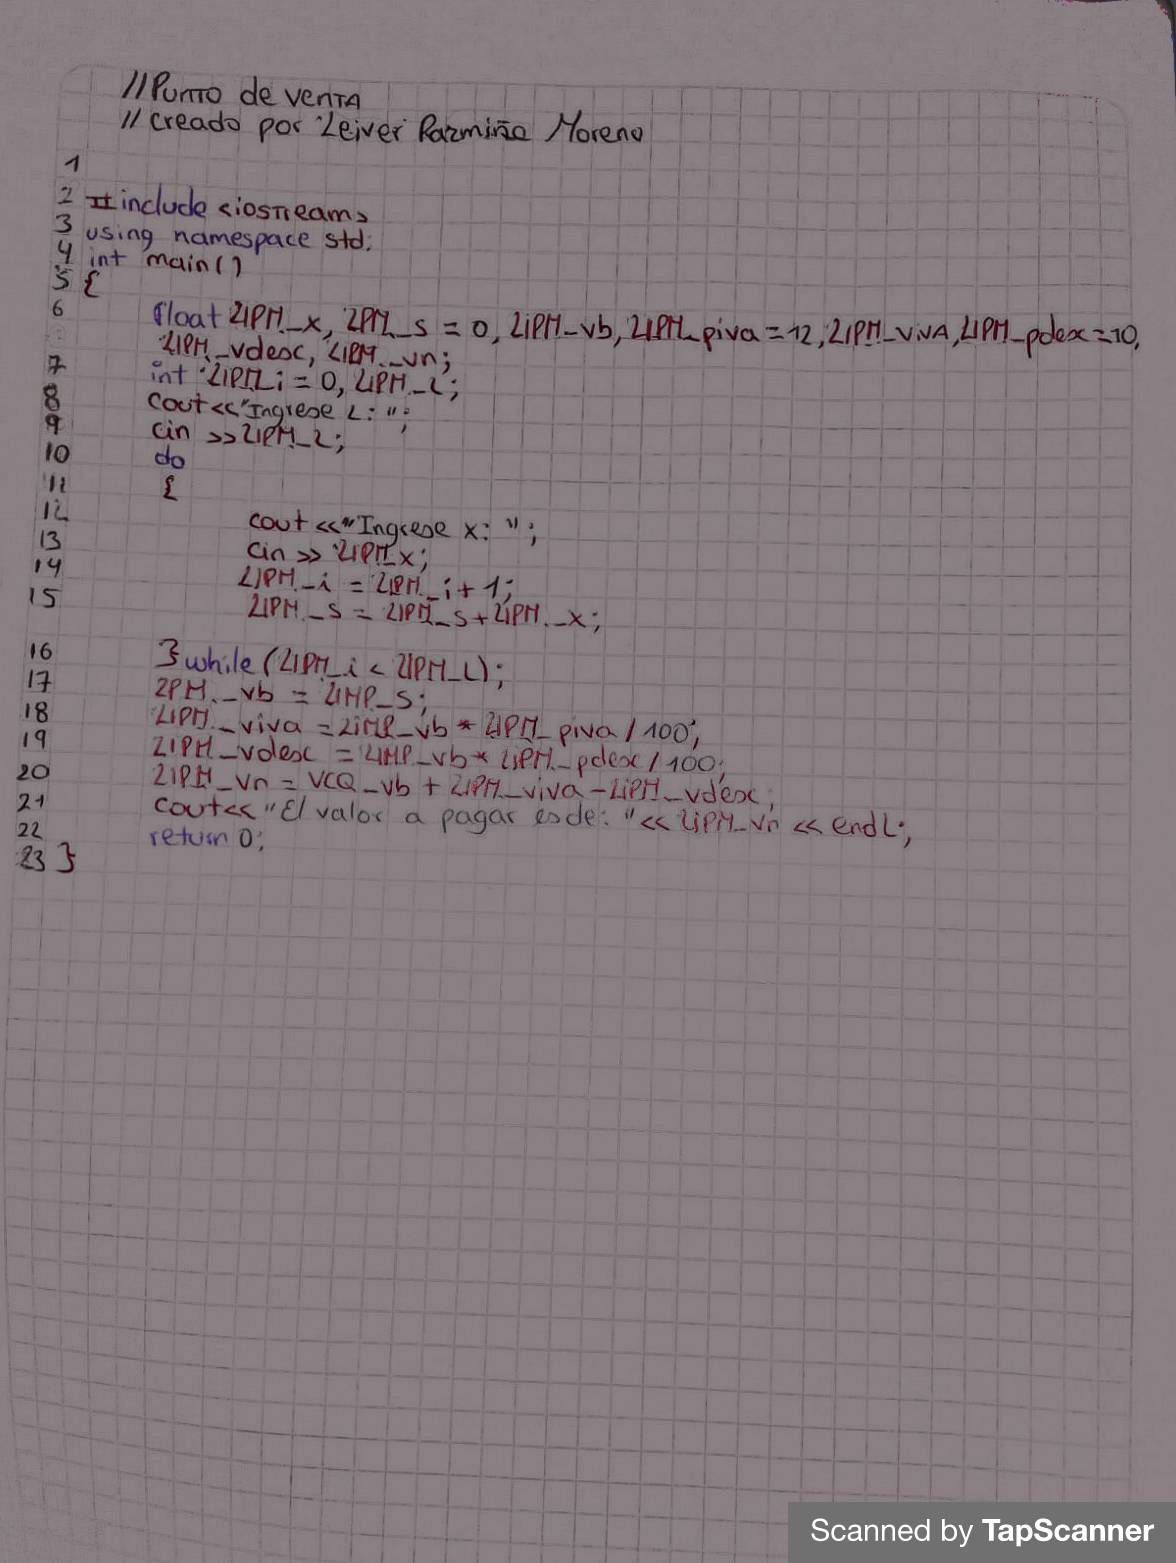 //Punto de venTA
//creado por Leiver Pazmiño Moreno
1
2 #include <iostream>
3 using namespace std;
4 int main()
5 {
6 float LIPM_x, LPM_s = 0, LiPM_vb, LIPM_piva = 12, LIPM_vivA, LIPM_pdesc = 10,
LIPM_vdesc, LIPM_vn;
7 int LIPM_i = 0, LIPM_L;
8 Cout<<"Ingrese L: ";
9 cin >>LIPM_L;
10 do
11 {
12 cout <<"Ingrese x: ";
13 cin >> LIPM_x;
14 LIPM_i = LIPM_i + 1;
15 LIPM_s = LIPM_s + LIPM_x;
16 } while (LIPM_i < LIPM_L);
17 LPM_vb = LIMP_s;
18 LIPM_viva = LiMP_vb * LIPM_piva / 100;
19 LIPM_vdesc = LIMP_vb * LIPM_pdesc / 100;
20 LIPM_vn = VCQ_vb + LIPM_viva - LiPM_vdesc;
21 cout<< "El valor a pagar es de: "<< LIPM_vn << endL;
22 return 0;
23 }
Scanned by TapScanner